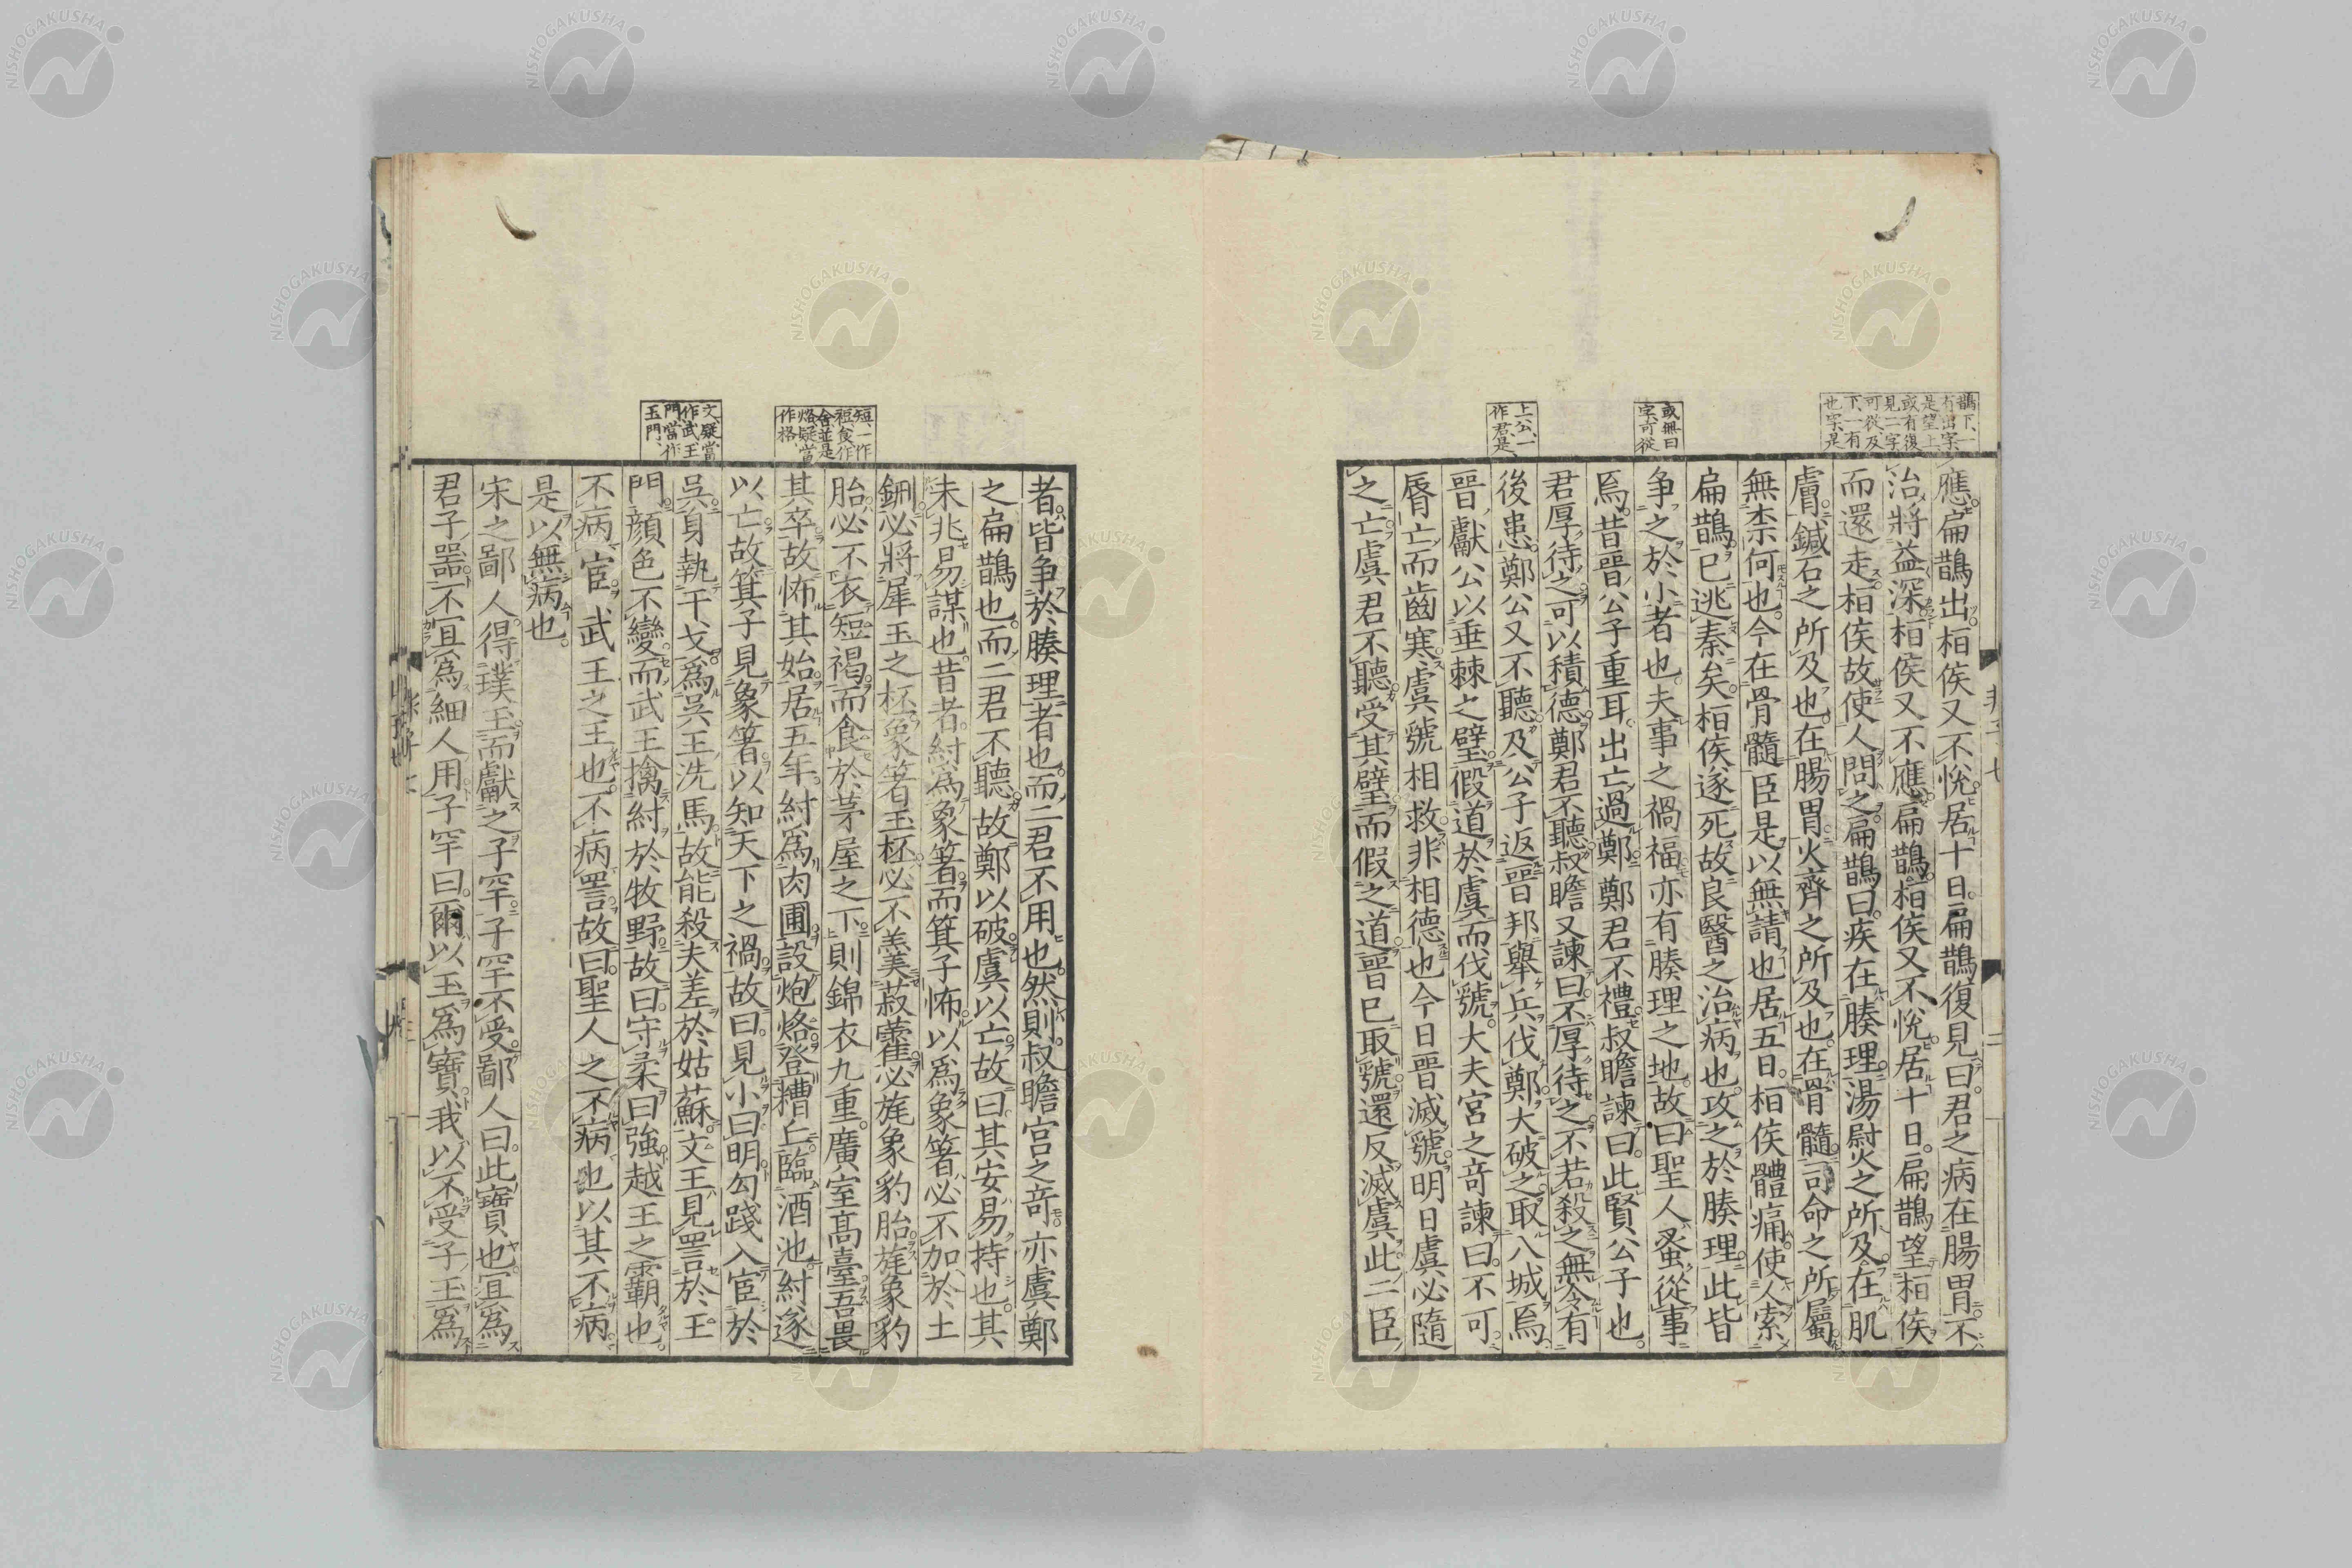 鵲下、一
有出字、
是望上
或有復
見二字
可從及
下、一有
也字、是
或無曰
字、可從
上公、一
作君、是
應扁鵲出桓侯又不悅居十日扁鵲復見曰君之病在腸胃不
治將益深桓侯又不應扁鵲桓侯又不悅居十日扁鵲望桓侯
而還走桓侯故使人問之扁鵲曰疾在腠理湯尉火之所及在肌
膚鍼石之所及也在腸胃火齊之所及也在骨髓司命之所屬
無柰何也今在骨髓臣是以無請也居五日桓侯體痛使人索
扁鵲已逃秦矣桓侯遂死故良醫之治病也攻之於腠理此皆
争之於小者也夫事之禍福亦有腠理之地故曰聖人蚤從事
焉昔晉公子重耳出亡過鄭鄭君不禮叔瞻諫曰此賢公子也
君厚待之可以積德鄭君不聽叔瞻又諫曰不厚待之不若殺之無令有
後患鄭公又不聽及公子返晉邦舉兵伐鄭大破之取八城焉
晉獻公以垂棘之璧假道於虞而伐虢大夫宮之奇諫曰不可
脣亡而齒寒虞虢相救非相德也今日晉滅虢明日虞必隨
之亡虞君不聽受其璧而假之道晉已取虢還反滅虞此二臣
短、一作
裋、食作
舍並是
烙疑當
作格
文、疑當
作武王
門當作
玉門、
者皆争於腠理者也而二君不用也然則叔瞻宮之奇亦虞鄭
之扁鵲也而二君不聽故鄭以破虞以亡故曰其安易持也其
未兆易謀也昔者紂為象箸而箕子怖以為象箸必不加於土
鉶必將犀玉之杯象箸玉杯必不羹菽藿必旄象豹胎旄象豹
胎必不衣短褐而食於茅屋之下則錦衣九重廣室高臺吾畏
其卒故怖其始居五年紂為肉圃設炮烙登糟丘臨酒池紂遂
以亡故箕子見象箸以知天下之禍故曰見小曰明勾踐入宦於
吳身執干戈為吳王洗馬故能殺夫差於姑蘇文王見詈於王
門顔色不變而武王擒紂於牧野故曰守柔曰強越王之霸也
不病宦武王之王也不病詈故曰聖人之不病也以其不病
是以無病也
宋之鄙人得璞玉而獻之子罕子罕不受鄙人曰此寶也宜為
君子器不宜為細人用子罕曰爾以玉為寶我以不受子玉為